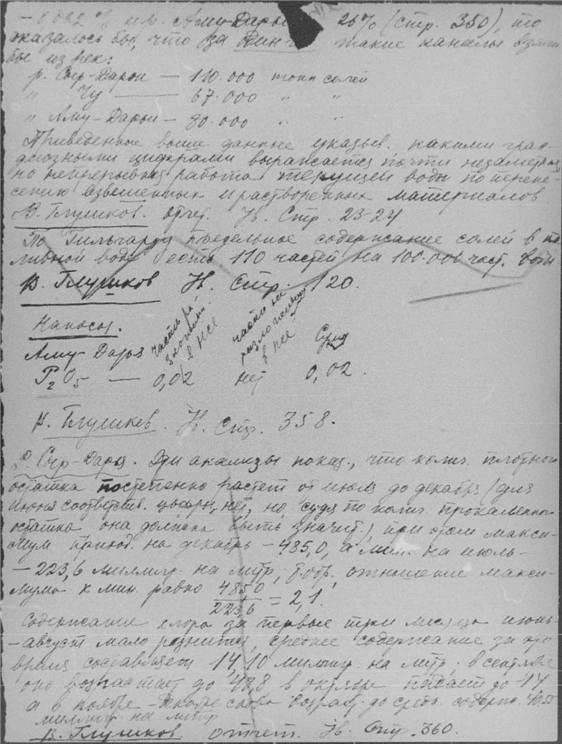 - 0,082 % и р. Аму-Дарьи 26% (стр. 350), то
оказалось бы, что за такие каналы взяли
бы из рек:
р. Сыр-Дарьи — 110.000 тонн солей
" Чу — 67.000 " "
" Аму-Дарьи — 80.000 " "
Приведенные выше данные указыв. какими гран-
диозными цифрами выражается почти незаметная
но непрерывная работа текущей воды по перене-
сению взвешенных и растворенных материалов.
В. Глушков. отчет. IV. Стр. 23-24
По Гильгарду предельное содержание солей в по-
ливной воде есть 110 частей на 100.000 част. воды
В. Глушков IV. Стр. 120.
Наносы.
Аму-Дарья часть в HCl часть не в HCl Сумма
P2O5 — 0,02 нет 0,02.
В. Глушков. IV. Стр. 358.
р. Сыр-Дарья. Эти анализы показ., что колич. плотного
остатка постепенно растет от июля до декабря (для
июня соответств. цифры нет, но, судя по колич. прокаленного
остатка она должна быть значит.) при этом макси-
мум приход. на декабрь - 485,0, а мин. на июль-
- 223,6 миллигр. на литр; отношение макси-
мума к мин. равно 485,0/223,6 = 2,1.
Содержание хлора за первые три месяца июнь-
-август мало разнится, среднее содержание за это
время составляет 14,10 миллигр. на литр; в сентябре
оно возрастает до 48,8 в октябре падает до 14
а в ноябре - снова возраст. до
миллигр. на литр
В. Глушков отчет. IV. Стр. 360.